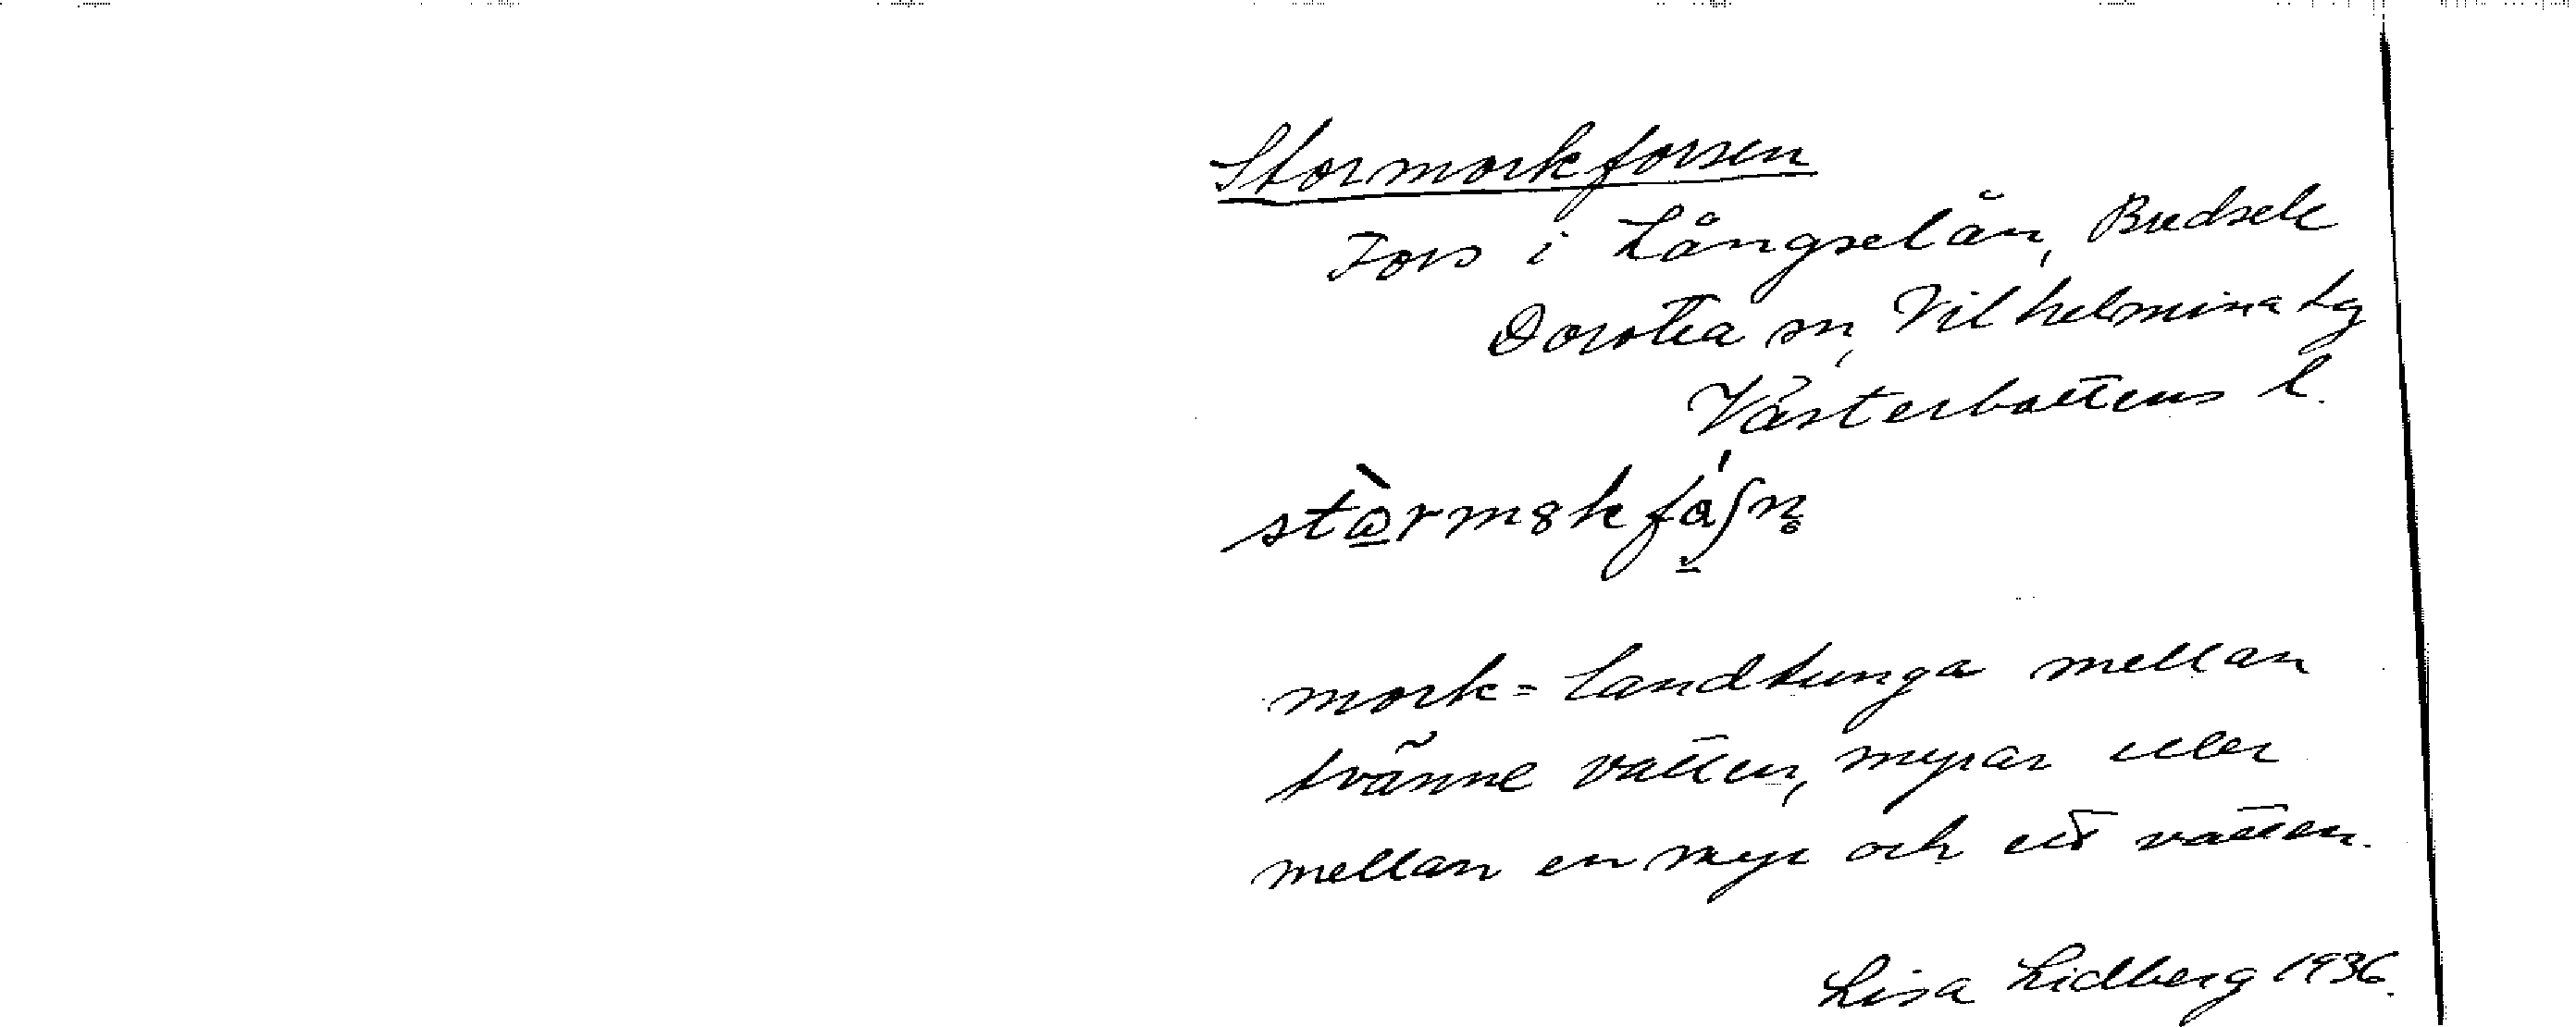 Stormorkforsen
Fors i Långselån, Bredsele
Dorotea sn, Vilhelmina tg
Västerbottens l.
mork = landtunga mellan
tvänne vatten, myrar eller
mellan en myr och ett vatten.
Lisa Lidberg 1936.